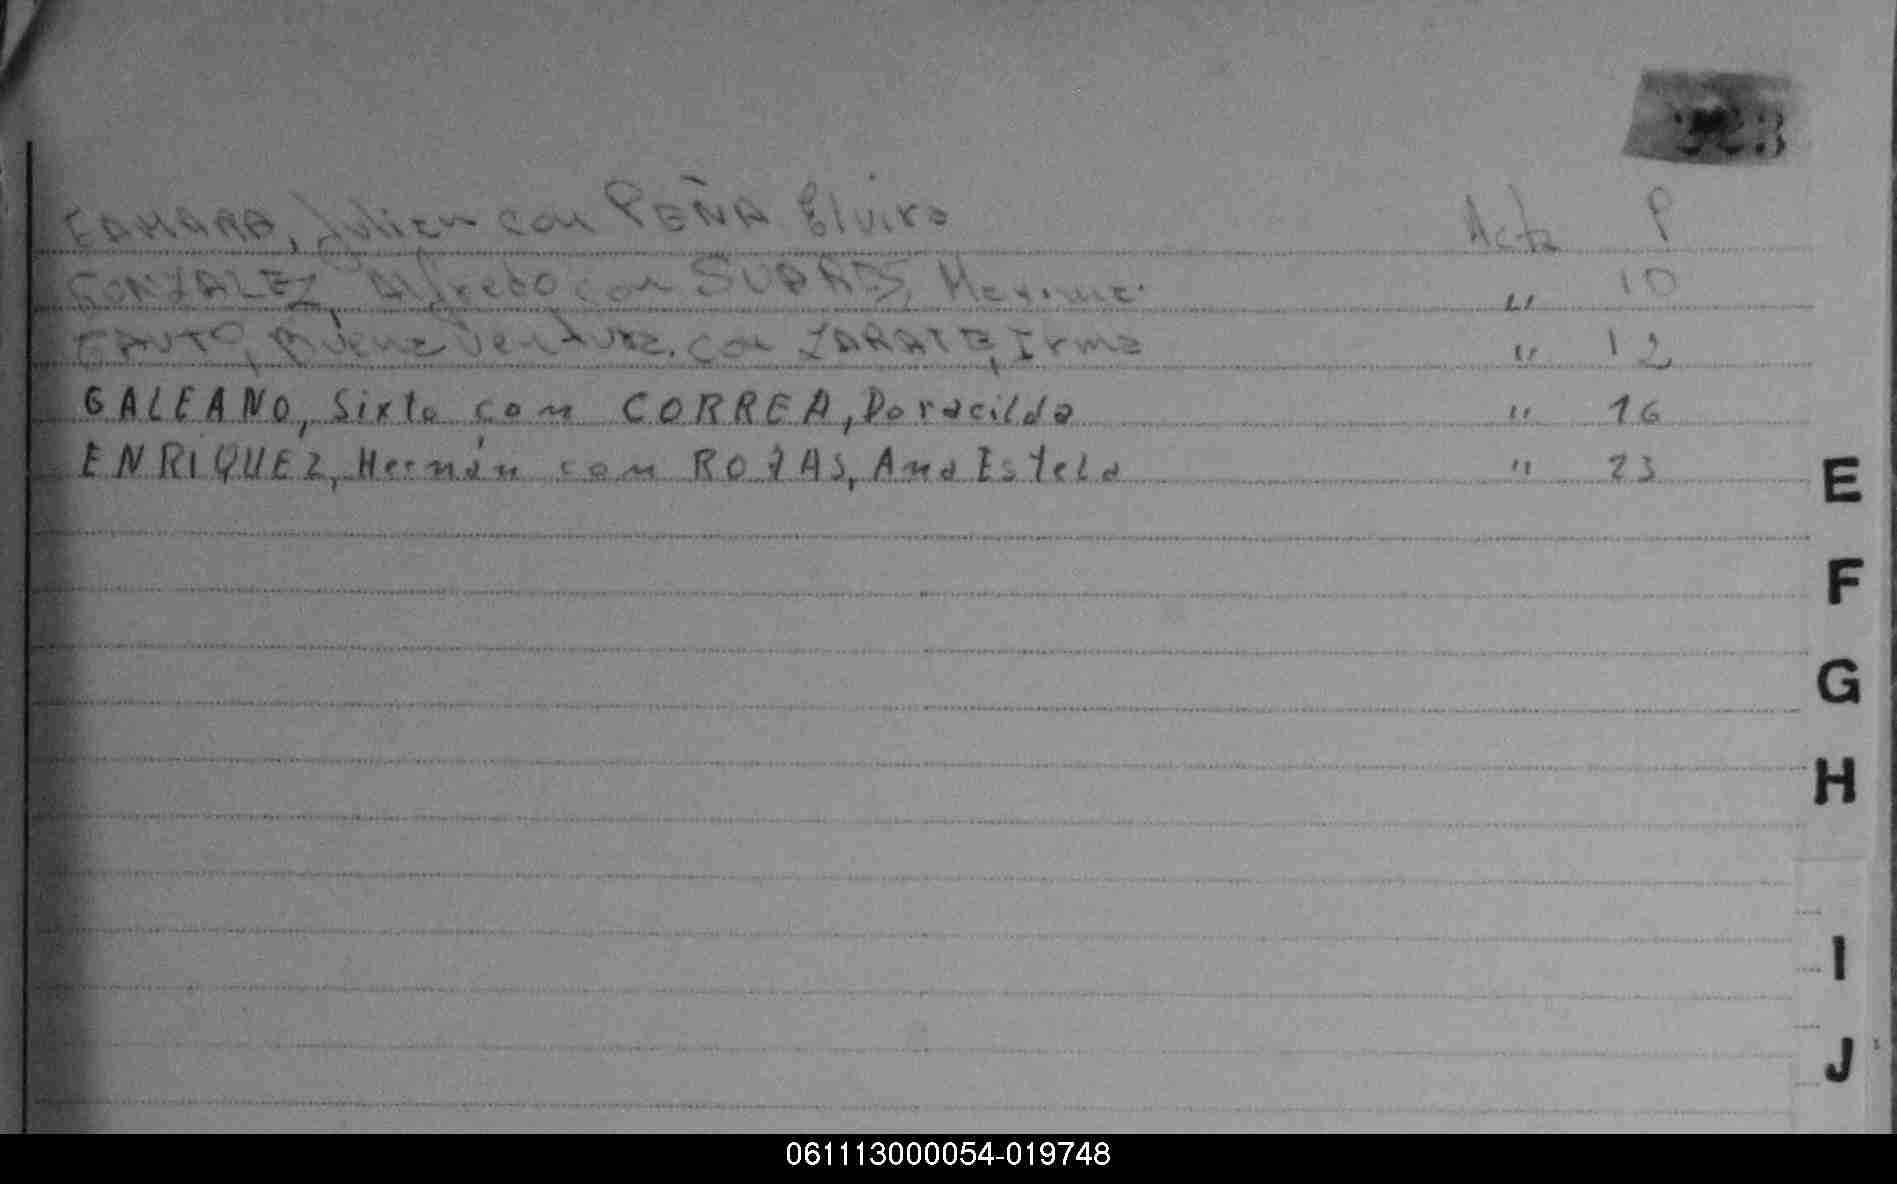 GAMARRA, Julian con PEÑA Elvira Acta 9
GONZALEZ, Alfredo con Maxima " 10
Buena Ventura con ZARATE, Irma " 12
GALEANO, Sixto con CORREA, Doracilda " 16
ENRIQUEZ, Hernán con ROJAS, Ana Estela " 23
E
F
G
H
I
J
061113000054-019748